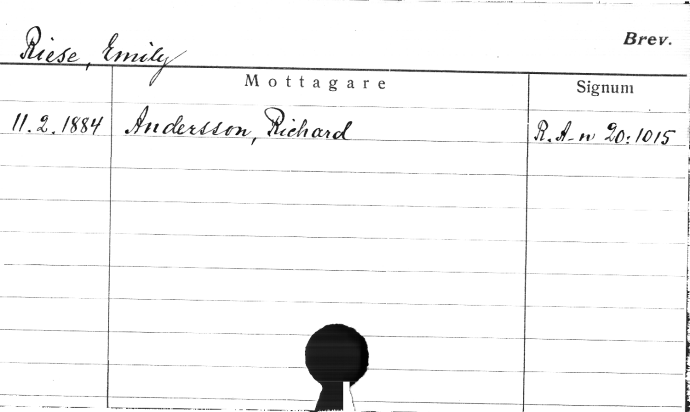 Brev.
Riese, Emily
Mottagare Signum
11.2.1884 Andersson, Richard R.A-n 20:1015